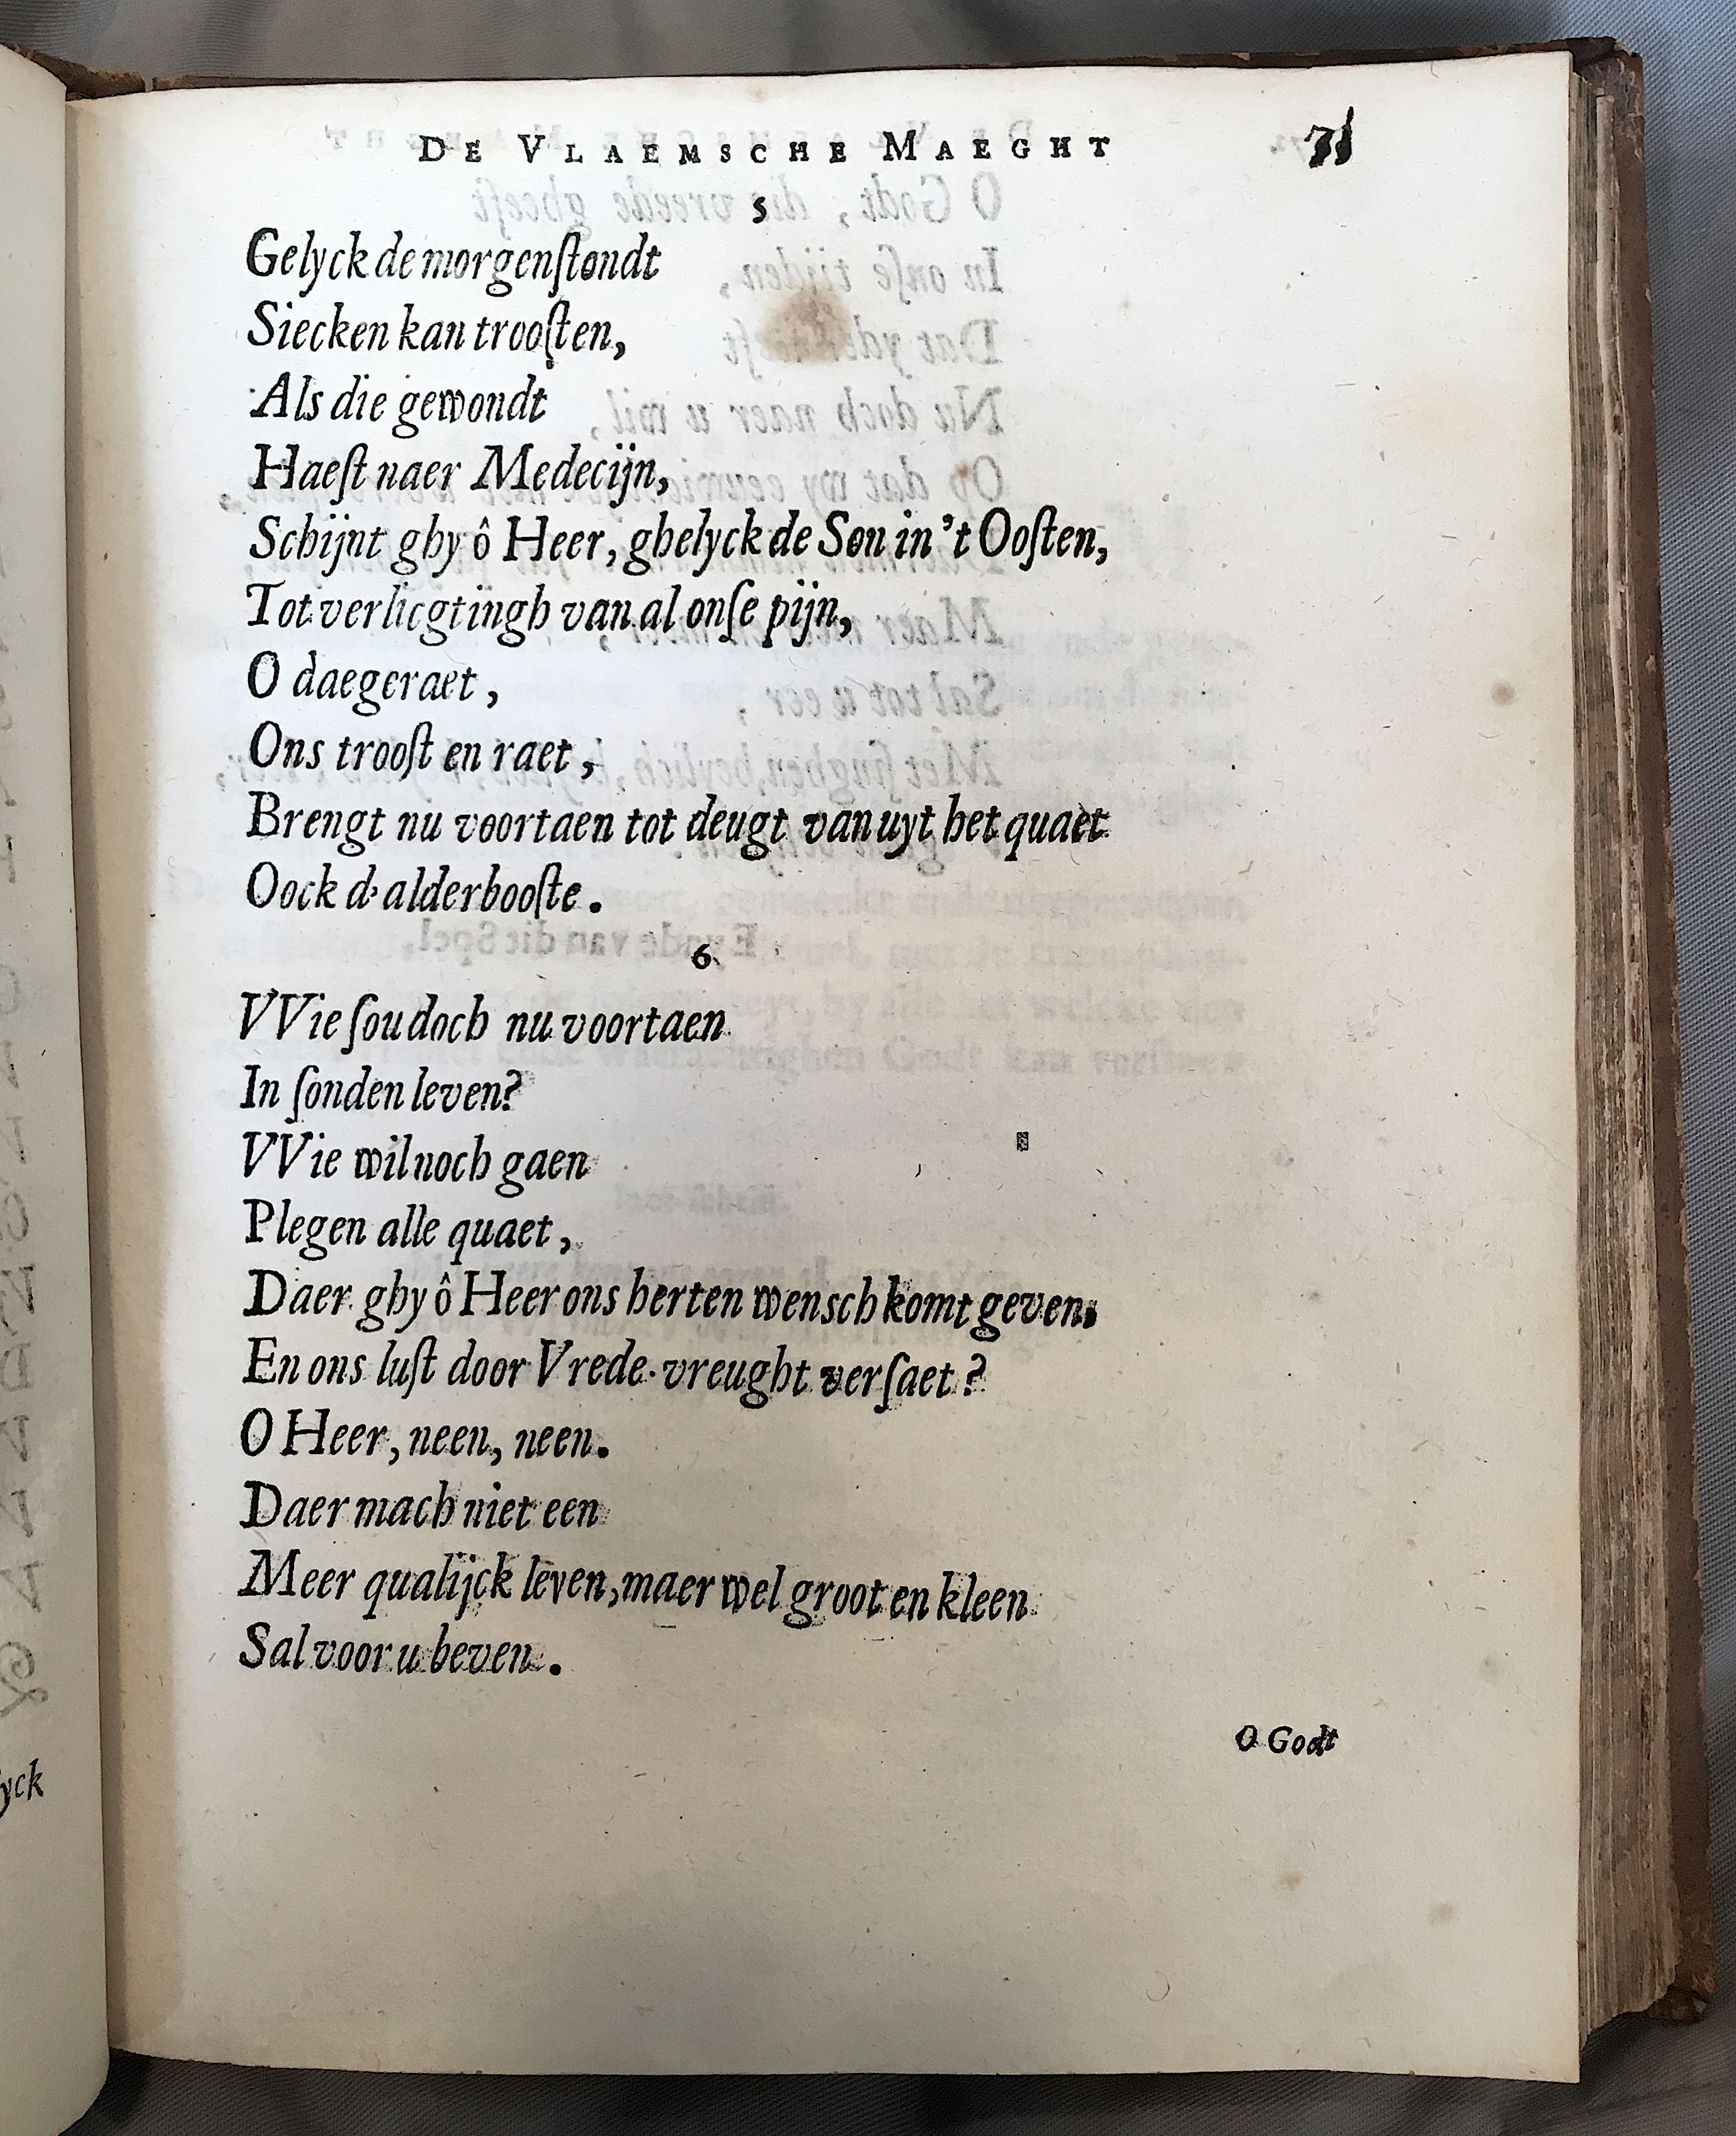 DE VLAEMSCHE MAEGHT 71
5
Gelyck de morgenſtondt
Siecken kan trooſten,
Als die gewondt
Haeſt naer Medecijn,
Schijnt ghy ô Heer, ghelyck de Son in 't Ooſten,
Tot verlicgtingh van al onſe pijn,
O daegeraet,
Ons trooſt en raet,
Brengt nu voortaen tot deugt van uyt het quaet
Oock d' alderbooſte.
6
VVie ſou doch nu voortaen
In ſonden leven?
VVie wil noch gaen
Plegen alle quaet,
Daer ghy ô Heer ons herten wensch komt geven,
En ons luſt door Vrede-vreught verſaet?
O Heer, neen, neen.
Daer mach niet een
Meer qualijck leven, maer wel groot en kleen
Sal voor u beven.
O Godt